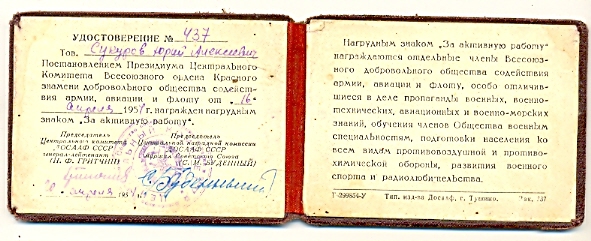 УДОСТОВЕРЕНИЕ № 437
Тов. Сукуров Юрий Алексеевич
Постановлением Президиума Центрального
Комитета Всесоюзного ордена Красного
знамени добровольного общества содейст-
вия армии, авиации и флоту от „16"
апреля 1957 г. награжден нагрудным
знаком „За активную работу".
Председатель
Центрального комитета
ДОСААФ СССР
генерал-лейтенант
(П. Ф. ГРИТЧИН)
Председатель
Центральной наградной комиссии
ДОСААФ СССР
Маршал Советского Союза
(С. М. БУДЕННЫЙ)
С. Буденный
апреля 195
Нагрудным знаком „За активную работу"
награждаются отдельные члены Всесоюз-
ного добровольного общества содействия
армии, авиации и флоту, особо отличив-
шиеся в деле пропаганды военных, военно-
технических, авиационных и военно-морских
знаний, обучения членов Общества военным
специальностям, подготовки населения ко
всем видам противовоздушной и противо-
химической обороны, развития военного
спорта и радиолюбительства.
Г-299854-У Тип. изд-ва Досааф, г. Тушино. Зак. 737